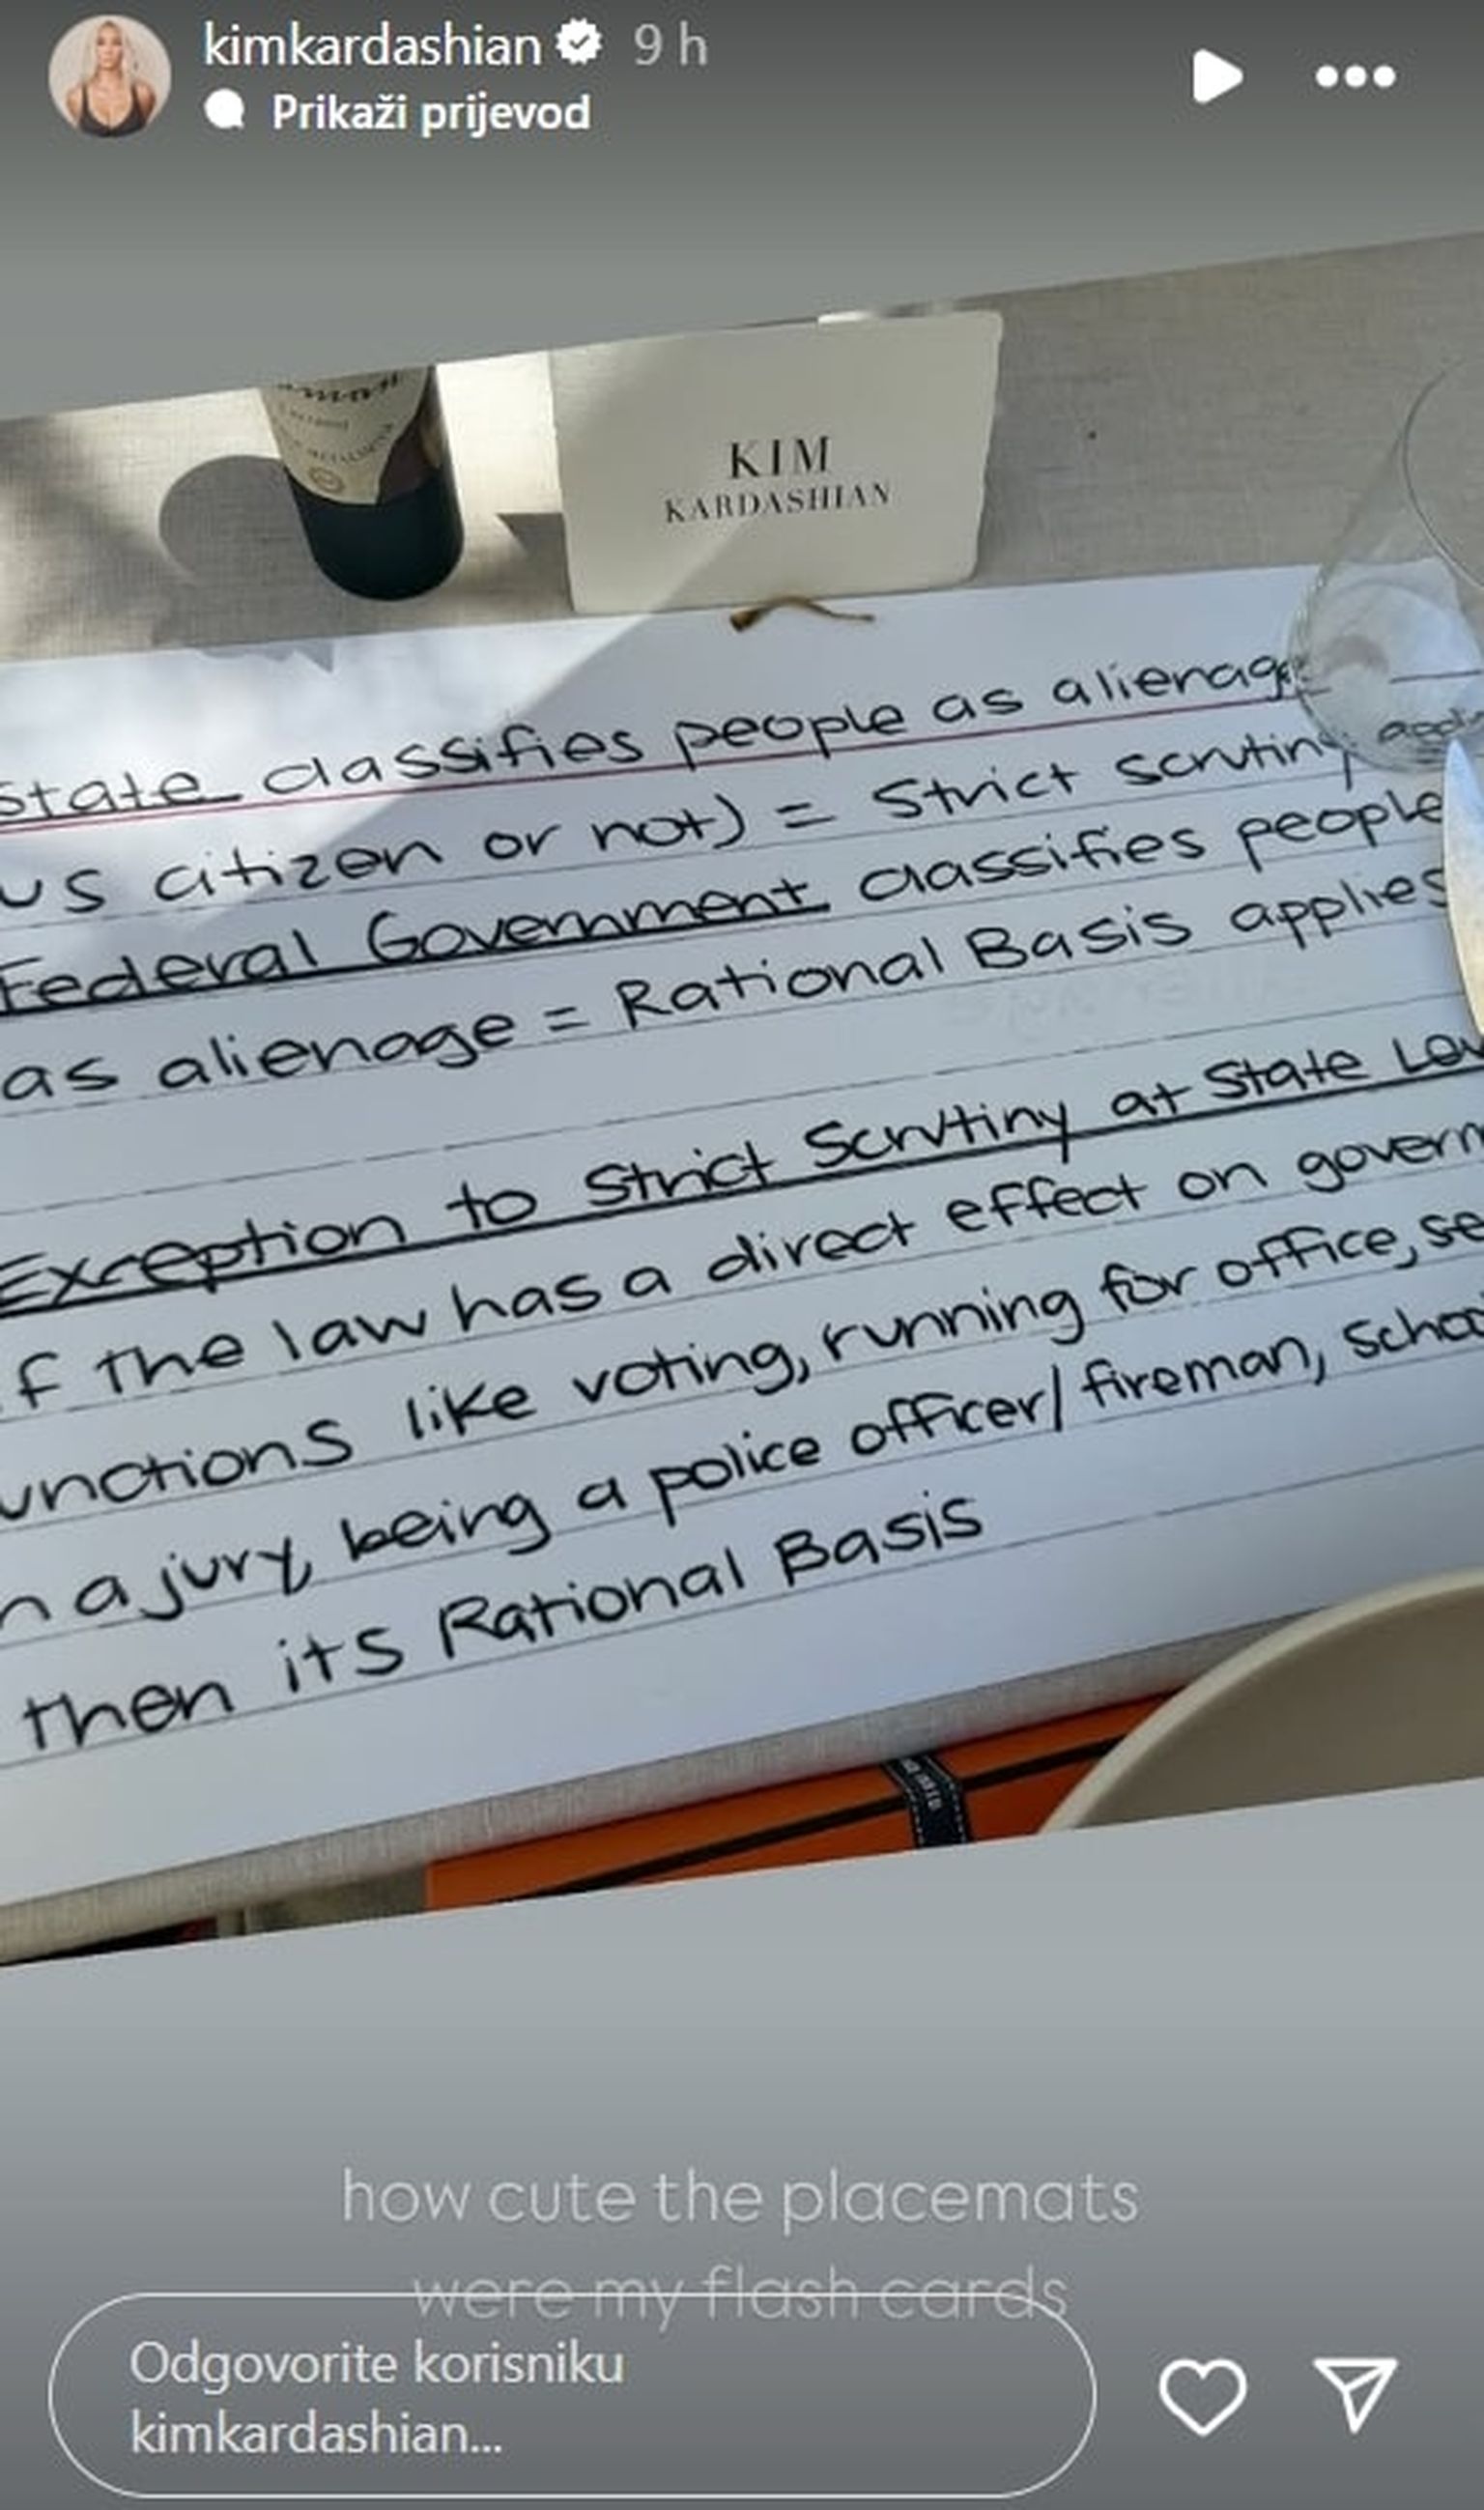 kimkardashian 9 h
Prikaži prijevod
KIM
KARDASHIAN
State classifies people as alienage
US citizen or not) = Strict scrutiny
Federal Government classifies people
as alienage = Rational Basis applies
Exception to Strict Scrutiny at State
f the law has a direct effect on govern
unctions like voting, running for office, se
n a jury, being a police officer/fireman, schoo
then its Rational Basis
how cute the placemats
were my flash cards
Odgovorite korisniku
kimkardashian...